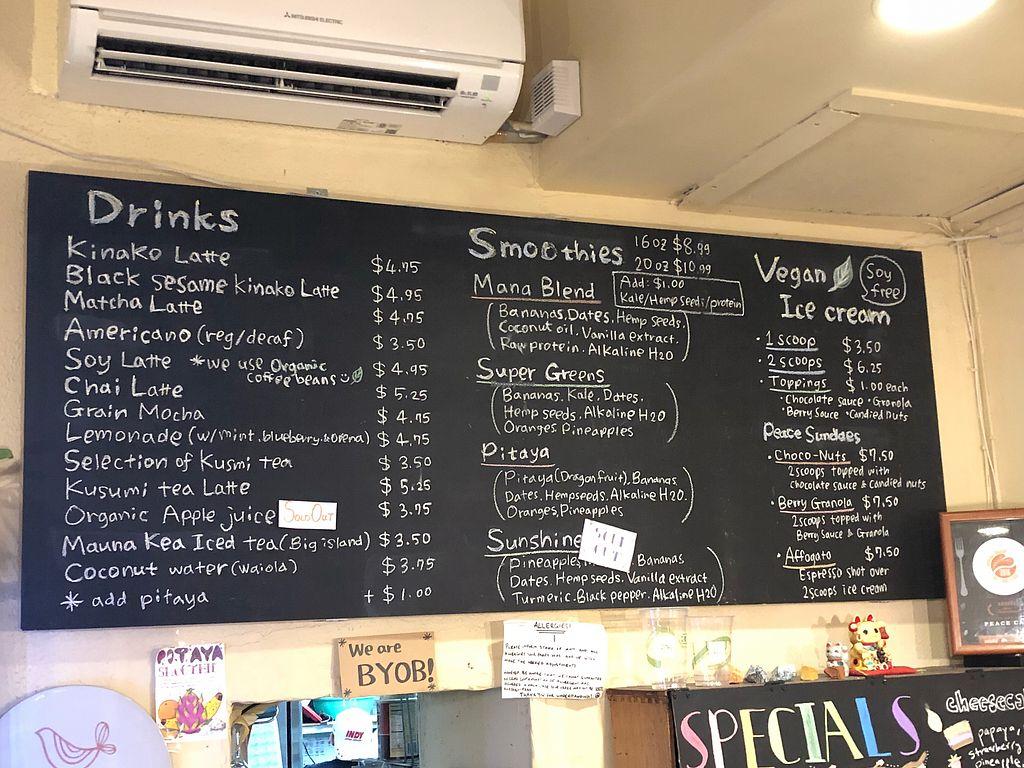 MITSUBISHI ELECTRIC
Drinks
Kinako Latte $4.75
Black sesame kinako Latte $4.95
Matcha Latte $4.75
Americano (reg/decaf) $3.50
Soy Latte *we use Organic coffee beans $4.95
Chai Latte $5.25
Grain Mocha $4.75
Lemonade (w/mint.blueberry.&olena) $4.75
Selection of Kusmi tea $3.50
Kusumi tea Latte $5.25
Organic Apple juice SOLD OUT $3.75
Mauna Kea Iced tea (Big island) $3.50
Coconut water (waiola) $3.75
* add pitaya + $1.00
Smoothies
16oz $8.99
20oz $10.99
Add: $1.00
Kale/Hemp seeds/protein
Mana Blend
(Bananas. Dates. Hemp seeds.
Coconut oil. Vanilla extract.
Raw protein. Alkaline H2O)
Super Greens
(Bananas. Kale. Dates.
Hemp seeds. Alkaline H2O
Oranges. Pineapples)
Pitaya
(Pitaya (Dragon fruit). Bananas
Dates. Hempseeds. Alkaline H2O.
Oranges, Pineapples)
Sunshine
SOLD OUT
(Pineapples, Bananas
Dates. Hemp seeds. Vanilla extract
Turmeric. Black pepper. Alkaline H2O)
Vegan
Ice cream
Soy
free
• 1 scoop $3.50
• 2 scoops $6.25
• Toppings $1.00 each
• Chocolate sauce • Granola
• Berry Sauce • Candied nuts
Peace Sundaes
• Choco-Nuts $7.50
2scoops topped with
chocolate sauce & candied nuts
• Berry Granola $7.50
2scoops topped with
Berry Sauce & Granola
• Affogato $7.50
Espresso shot over
2scoops ice cream
PITAYA
SMOOTHIE
We are
BYOB!
ALLERGIES!
THANK YOU FOR UNDERSTANDING!
INDY
PEACE CA
SPECIALS
cheeseca
papaya,
strawberry
pineapple